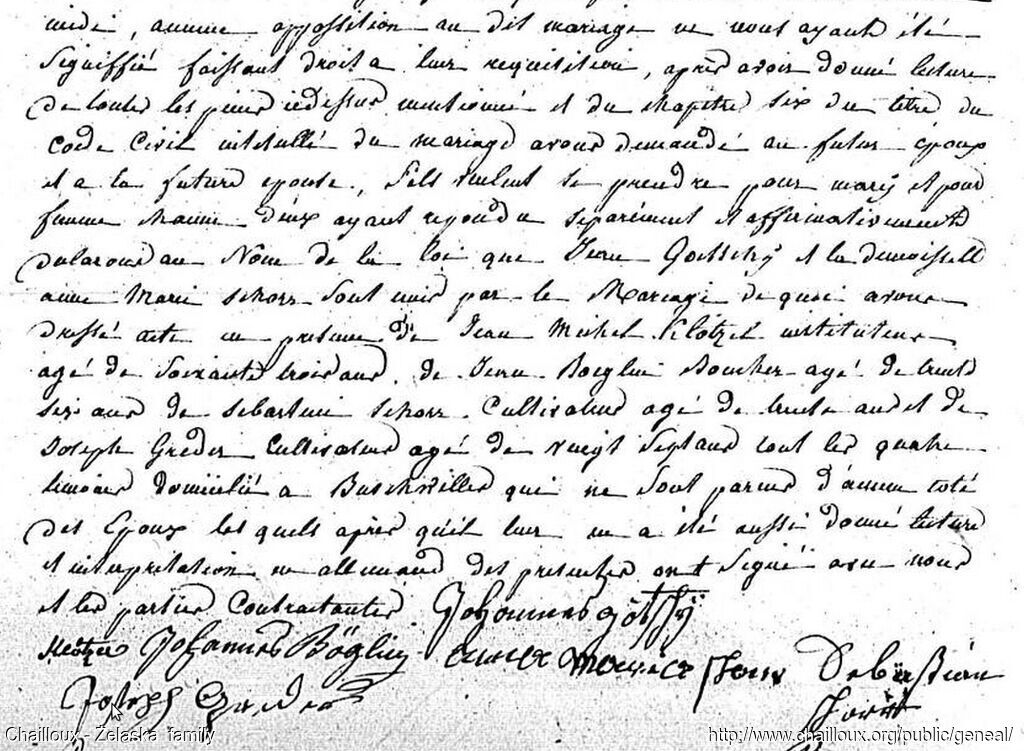 midi, aucune opposition au dit mariage ne nous ayant été
Signiffié faissant droit a leur requisition, après avoir donné lecture
de toutes les pieces cidessus mentionné et du chapitre six du titre du
Code Civil intitullé du mariage avons demandé au futur époux
et a la future epouse, S'ils veulent se prendre pour mary et pour
femme chacun d'eux ayant repondu separément et affirmativement
declarons au Nom de la loi que Jean Goetschy et la demoiselle
anne Marie schorr Sont unis par le Mariage de quoi avons
dressé acte en presence de Jean Michel Klötzel instituteur
agé de Soixante trois ans, de Jean Boeglin Boucher agé de trente
six ans de sebastien schorr Cultivateur agé de trente ans et de
Joseph Greder Cultivateur agé de vingt Sept ans tout les quatre
temoins domicilié a Buschwiller qui ne Sont parens d'aucun coté
des Epoux les quels après qu'il leur en a été aussi donné lecture
et interpretation en allemand des presentes ont Signé avec nous
et les parties Contractantes. Johannes götschÿ
Klötzel Johannes Böglin anna maria schorr Sebastian
Joseph Greder schorr
Chailloux - Żelaska family http://www.chailloux.org/public/geneal/